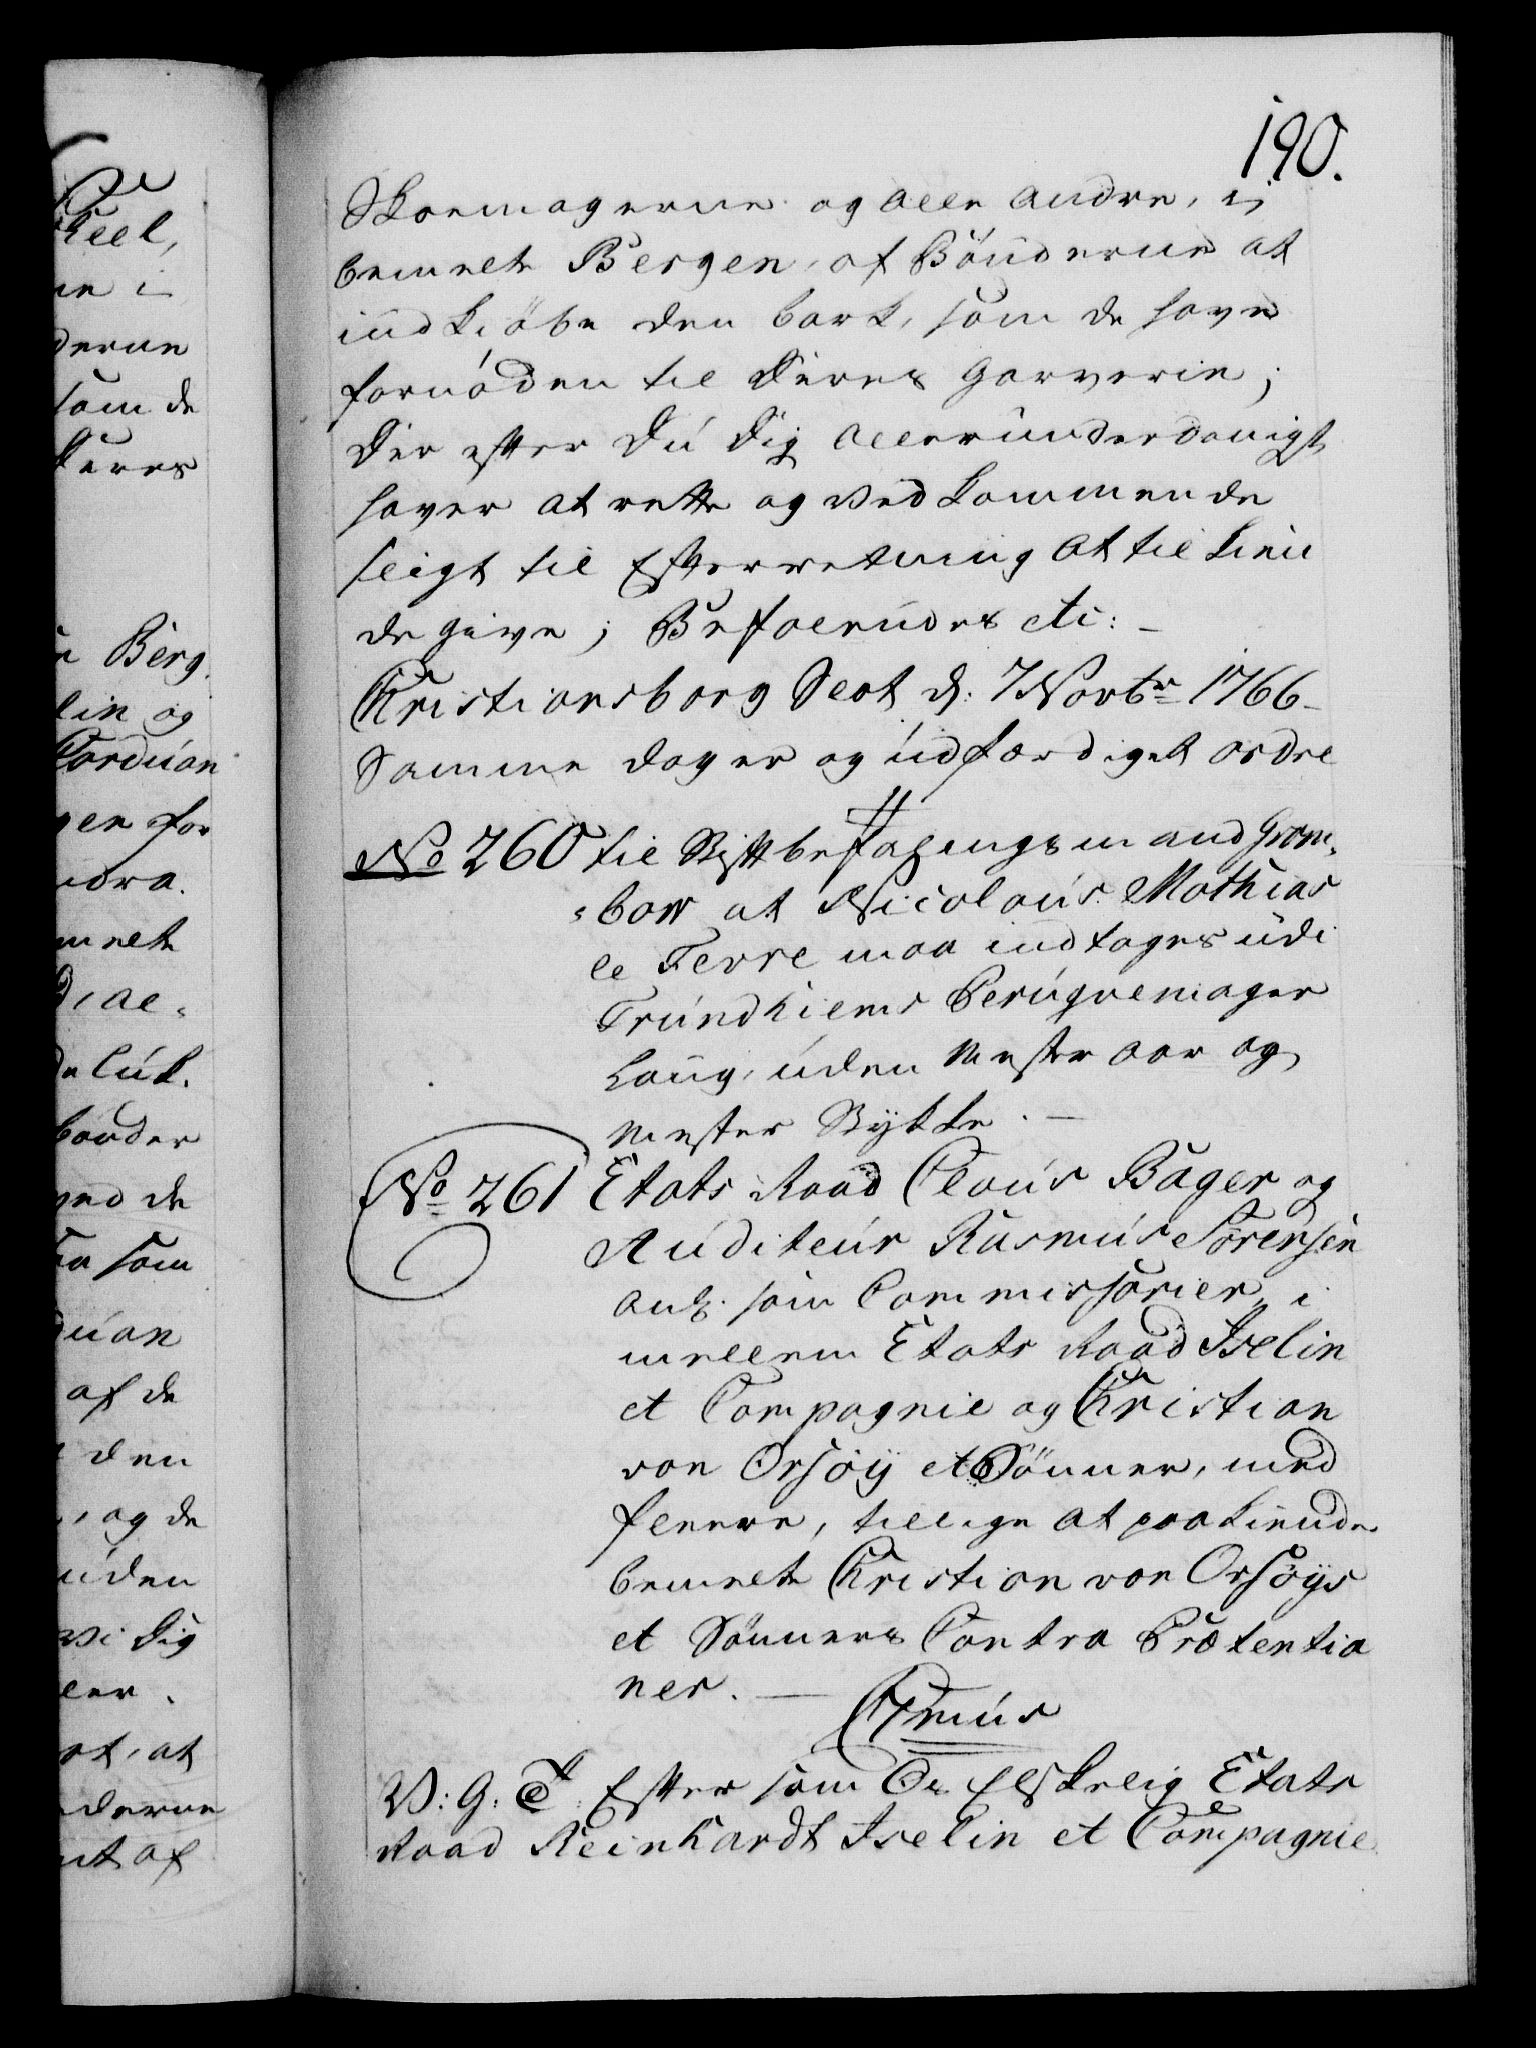 190.
Skoemagerne og alle andre, i
bemelte Bergen, af Bönderne at
indkiöbe den bark, som de have
fornöden til deres Garverie;
Der efter Du dig allerunderdanigst
haver at rette og ved kommende
sligt til Efterretning at tilkien
de give; Befalendes etc: _
Christiansborg Slot d: 7 Novbr 1766_
Samme dag er og udfærdiget ordre
No 260 til Stiftbefalingsmand Gram,
=bow at Nicolaus Mathias
le Fevre maa indtages udi
Trundhiems Peruqvemager
Laug, uden Mester aar og
Mester Stykke. _
No 261 Etats Raad Claus Bager og
Auditeur Rasmus Sörensen
ank. som Commissarier, i
mellem Etats Raad Iselin
et Compagnie og Christian
von Orsöy et Sönner, med
flere, tillige at paakiende
bemelte Christian von Orsöys
et Sönners Contra Prætentio
ner. _
V: G: T. Eftersom Os Elskelig Etats
Raad Reinhardt Iselin et Compagnie
keel,
ne i
derne
som de
deres
Berg.
lin og
Corduan
gen for
melte
de luk.
ved de
som
duan
af de
den
, og de
uden
vi dig
at, at
derne
af